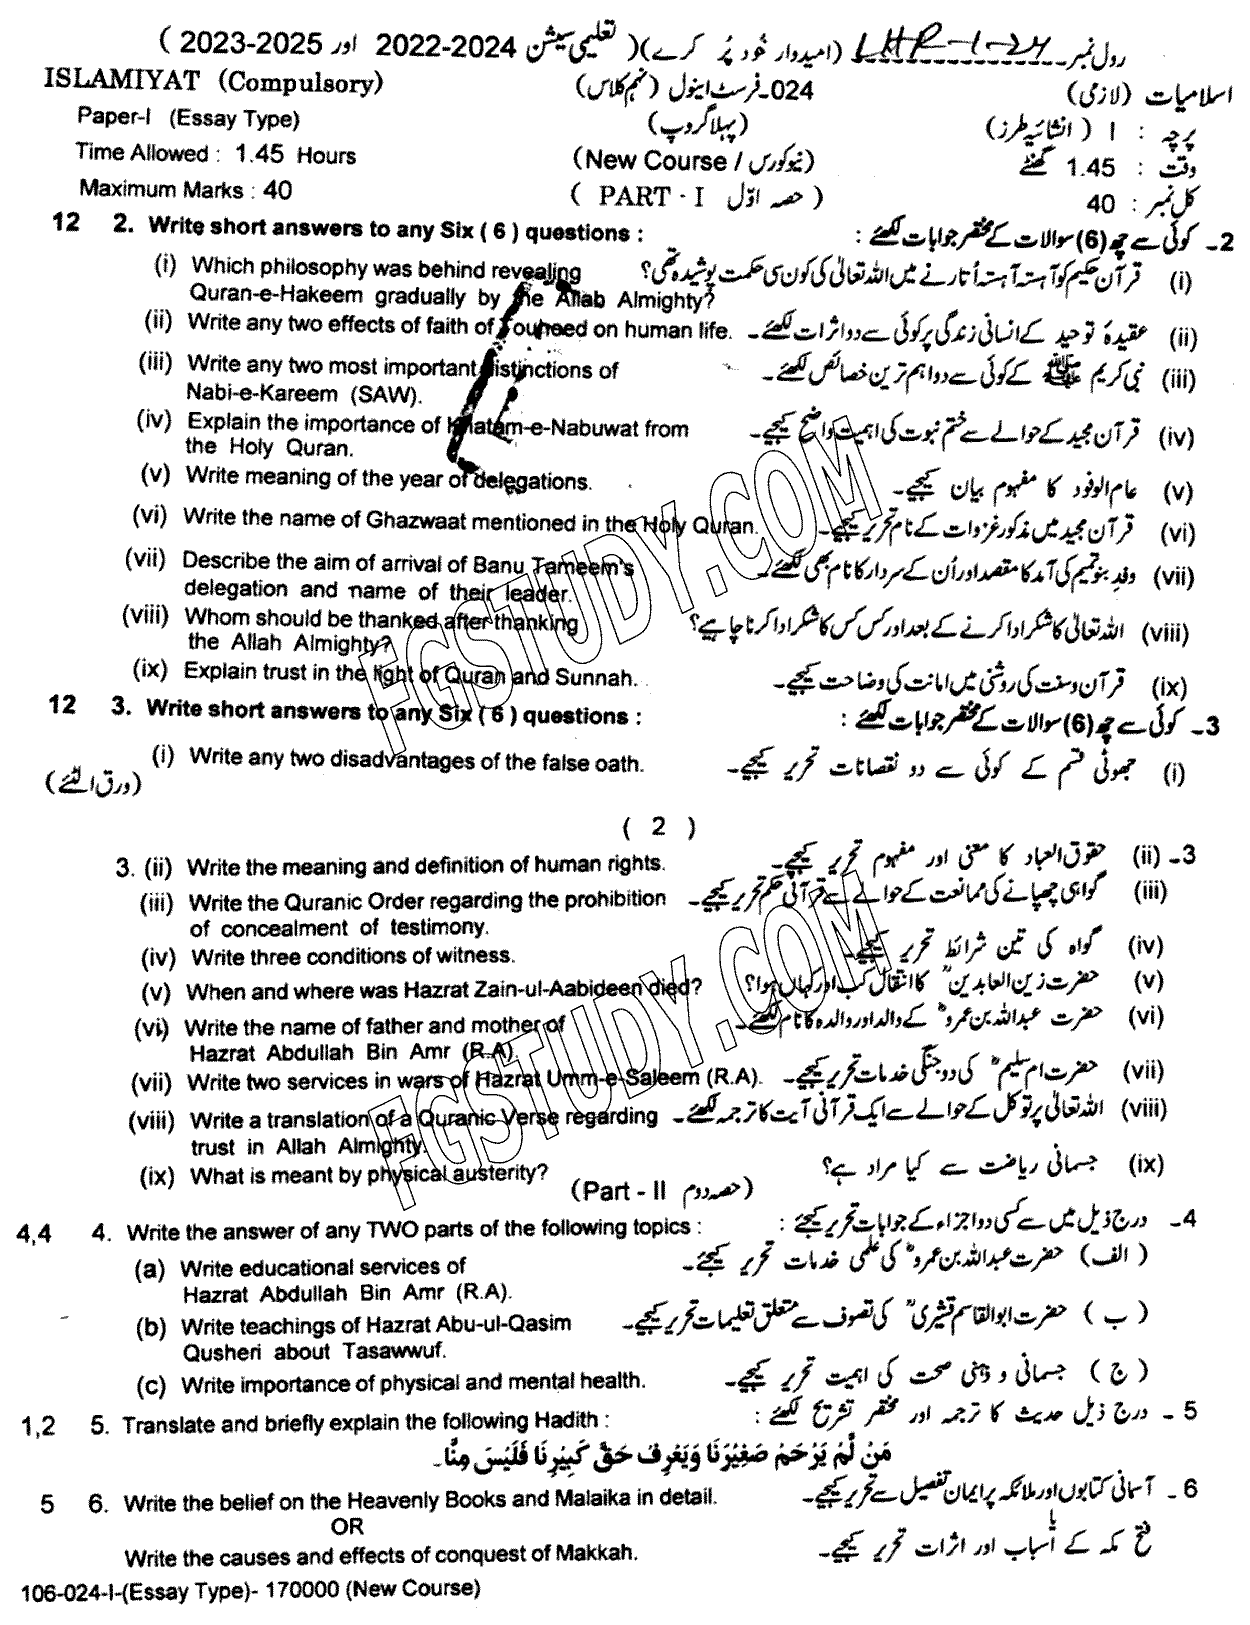 رول نمبر LHR-1-24 (امیدوار خود پُر کرے)( تعلیمی سیشن 2024-2022 اور 2025-2023 )
ISLAMIYAT (Compulsory) 024-فرسٹ اینول (نہم کلاس) اسلامیات (لازمی)
Paper-I (Essay Type) (پہلا گروپ) پرچہ : I (انشائیہ طرز)
Time Allowed : 1.45 Hours (New Course / نیو کورس) وقت : 1.45 گھنٹے
Maximum Marks : 40 ( PART - I حصہ اوّل ) کل نمبر : 40
12 2. Write short answers to any Six ( 6 ) questions : 2- کوئی سے چھ (6) سوالات کے مختصر جوابات لکھئے :
(i) Which philosophy was behind revealing (i) قرآن حکیم کو آہستہ آہستہ اُتارنے میں اللہ تعالیٰ کی کون سی حکمت پوشیدہ تھی؟
Quran-e-Hakeem gradually by the Allah Almighty?
(ii) Write any two effects of faith of Touheed on human life. (ii) عقیدۂ توحید کے انسانی زندگی پر کوئی سے دو اثرات لکھئے۔
(iii) Write any two most important distinctions of (iii) نبی کریم ﷺ کے کوئی سے دو اہم ترین خصائص لکھئے۔
Nabi-e-Kareem (SAW).
(iv) Explain the importance of Khatam-e-Nabuwat from (iv) قرآن مجید کے حوالے سے ختم نبوت کی اہمیت واضح کیجیے۔
the Holy Quran.
(v) Write meaning of the year of delegations. (v) عام الوفود کا مفہوم بیان کیجیے۔
(vi) Write the name of Ghazwaat mentioned in the Holy Quran. (vi) قرآن مجید میں مذکور غزوات کے نام تحریر کیجیے۔
(vii) Describe the aim of arrival of Banu Tameem's (vii) وفدِ بنو تمیم کی آمد کا مقصد اور اُن کے سردار کا نام بھی لکھئے۔
delegation and name of their leader.
(viii) Whom should be thanked after thanking (viii) اللہ تعالیٰ کا شکر ادا کرنے کے بعد اور کس کس کا شکر ادا کرنا چاہیے؟
the Allah Almighty?
(ix) Explain trust in the light of Quran and Sunnah. (ix) قرآن و سنت کی روشنی میں امانت کی وضاحت کیجیے۔
12 3. Write short answers to any Six ( 6 ) questions : 3- کوئی سے چھ (6) سوالات کے مختصر جوابات لکھئے :
(i) Write any two disadvantages of the false oath. (i) جھوٹی قسم کے کوئی سے دو نقصانات تحریر کیجیے۔
(ورق الٹئے)
( 2 )
3. (ii) Write the meaning and definition of human rights. 3- (ii) حقوق العباد کا معنی اور مفہوم تحریر کیجیے۔
(iii) Write the Quranic Order regarding the prohibition (iii) گواہی چھپانے کی ممانعت کے حوالے سے قرآنی حکم تحریر کیجیے۔
of concealment of testimony.
(iv) Write three conditions of witness. (iv) گواہ کی تین شرائط تحریر کیجیے۔
(v) When and where was Hazrat Zain-ul-Aabideen died? (v) حضرت زین العابدینؒ کا انتقال کب اور کہاں ہوا؟
(vi) Write the name of father and mother of (vi) حضرت عبداللہ بن عمروؓ کے والد اور والدہ کا نام لکھئے۔
Hazrat Abdullah Bin Amr (R.A).
(vii) Write two services in wars of Hazrat Umm-e-Saleem (R.A). (vii) حضرت ام سلیمؓ کی دو جنگی خدمات تحریر کیجیے۔
(viii) Write a translation of a Quranic Verse regarding (viii) اللہ تعالیٰ پر توکل کے حوالے سے ایک قرآنی آیت کا ترجمہ لکھئے۔
trust in Allah Almighty.
(ix) What is meant by physical austerity? (ix) جسمانی ریاضت سے کیا مراد ہے؟
(Part - II حصہ دوم)
4,4 4. Write the answer of any TWO parts of the following topics : 4- درج ذیل میں سے کسی دو اجزاء کے جوابات تحریر کیجئے :
(a) Write educational services of (الف) حضرت عبداللہ بن عمروؓ کی علمی خدمات تحریر کیجئے۔
Hazrat Abdullah Bin Amr (R.A).
(b) Write teachings of Hazrat Abu-ul-Qasim (ب) حضرت ابوالقاسم قشیریؒ کی تصوف سے متعلق تعلیمات تحریر کیجیے۔
Qusheri about Tasawwuf.
(c) Write importance of physical and mental health. (ج) جسمانی و ذہنی صحت کی اہمیت تحریر کیجیے۔
1,2 5. Translate and briefly explain the following Hadith : 5- درج ذیل حدیث کا ترجمہ اور مختصر تشریح لکھئے :
مَنْ لَّمْ يَرْحَمْ صَغِيْرَنَا وَيَعْرِفْ حَقَّ كَبِيْرِنَا فَلَيْسَ مِنَّا۔
5 6. Write the belief on the Heavenly Books and Malaika in detail. 6- آسمانی کتابوں اور ملائکہ پر ایمان تفصیل سے تحریر کیجیے۔
OR یا
Write the causes and effects of conquest of Makkah. فتح مکہ کے اسباب اور اثرات تحریر کیجیے۔
106-024-I-(Essay Type)- 170000 (New Course)
FGSTUDY.COM
FGSTUDY.COM